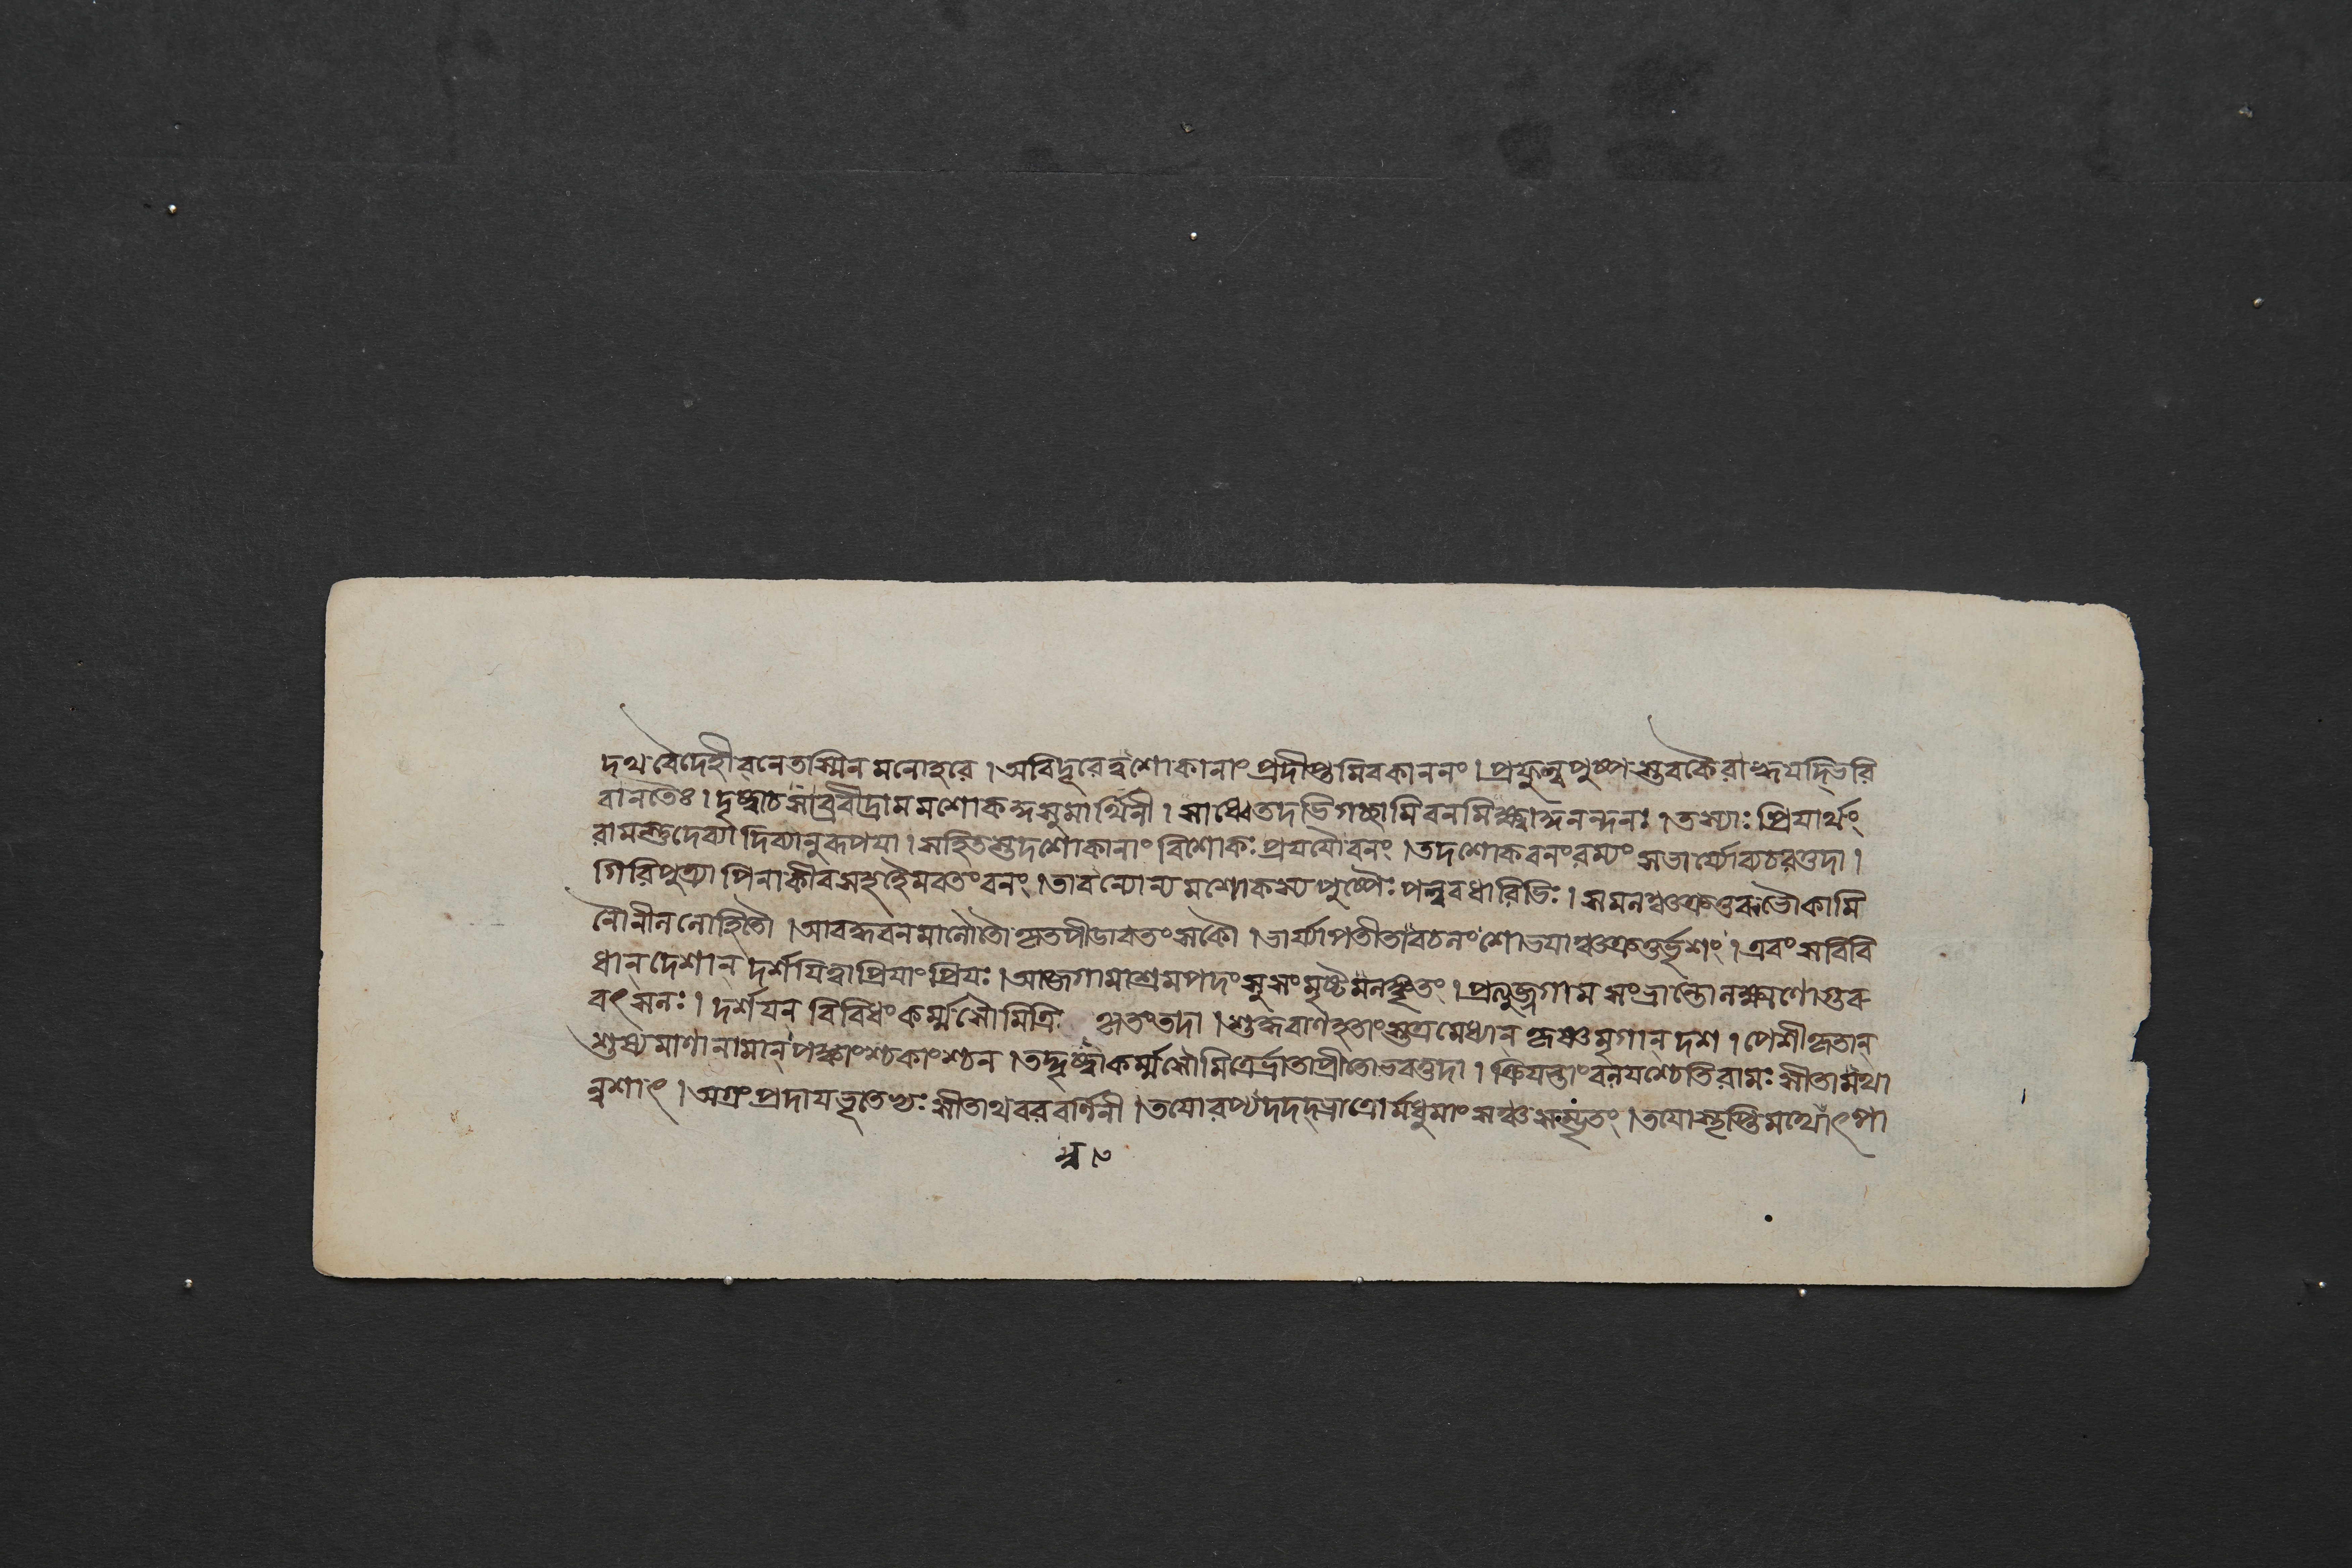 দথ বৈদেহী বনে তস্মিন মনোহরে । অবিদূরে ত্বশোকানাং প্রদীপ্তমিব কাননং । প্রফুল্ল পুষ্প স্তবকৈ রাহ্বয়দ্ভিরি
বানতৈঃ । দৃষ্ট্বাচ সাব্রবীদ্রামমশোককুসুমার্থিনী । সাধ্বেতদভিগচ্ছামি বনমিক্ষ্বাকুনন্দনঃ । তস্যাঃ প্রিয়ার্থং
রামস্তু দেব্যা দিব্যানুরূপয়া । সহিতস্তদশোকানাং বিশোকঃ প্রযযৌ বনং । তদশোকবনং রম্যং সভার্য্যো ব্যচরত্তদা ।
গিরিপুত্র্যা পিনাকীব সহ হৈমবতং বনং । তাবন্যোন্যমশোকস্য পুষ্পৈঃ পল্লবধারিভিঃ । সমলঞ্চক্রতুরুভৌ কামি
নৌ নীললোহিতৌ । আবদ্ধবনমালৌ তৌ কৃতপীডাবতংসকৌ । ভার্য্যাপতী তাবচলং শোভয়াঞ্চক্রতুর্ভৃশং । এবং স বিবি
ধান্ দেশান্ দর্শয়িত্বা প্রিয়াং প্রিয়ঃ । আজগামাশ্রমপদং সুসংমৃষ্টমলঙ্কৃতং । প্রত্যুজ্জগাম সংভ্রান্তো লক্ষ্মণো গুরু
বৎসলঃ । দর্শয়ন্ বিবিধং কর্ম্ম সৌমিত্রিঃ কৃতং তদা । শুদ্ধবাণহতাংস্তত্র মেধ্যান্ কৃষ্ণমৃগান্ দশ । পেশীকৃতান্
শুষ্যমাণানামান্ পক্কাংশ্চ কাংশ্চন । তদ্দৃষ্ট্বা কর্ম্ম সৌমিত্রের্ভ্রাতা প্রীতোভবত্তদা । ক্রিয়ন্তাং বলয়শ্চেতি রামঃ সীতামথা
ন্বশাৎ । অগ্রং প্রদায় ভূতেভ্যঃ সীতাথ বরবর্ণিনী । তয়োরপ্যদদদ্ভ্রাত্রোর্মধুমাংসঞ্চ সম্ভৃতং । তয়োস্তৃপ্তিমথোৎপা